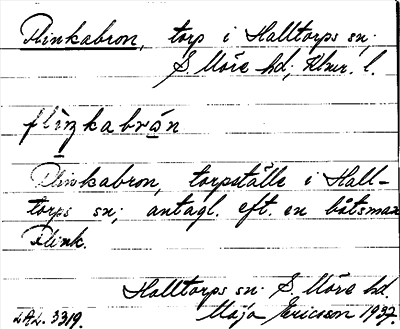 Flinkabron, torp i Halltorps sn;
S. Möre hd; Klmr. l.
flìŋkabrón
Flinkabron, torpställe i Hall-
torps sn; antagl. eft. en båtsman
Flink.
Halltorps sn. S. Möre hd.
LAL. 3319. Maja Ericson 1937.